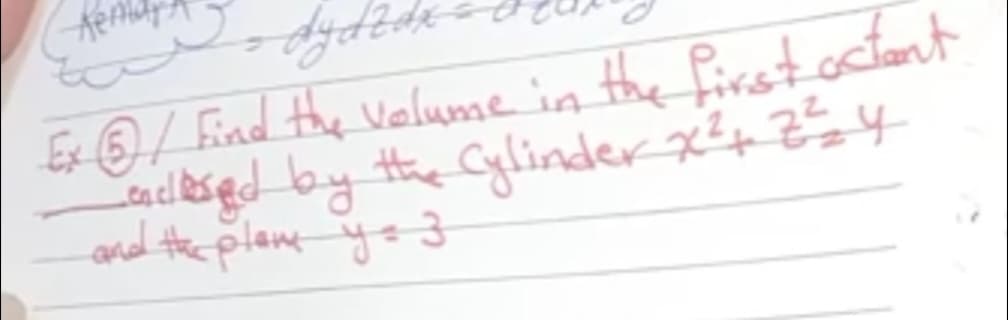 Remark
= dydzdx =
Ex ⑤ / Find the volume in the first octant
enclosed by the Cylinder x² + z² = 4
and the plane y = 3